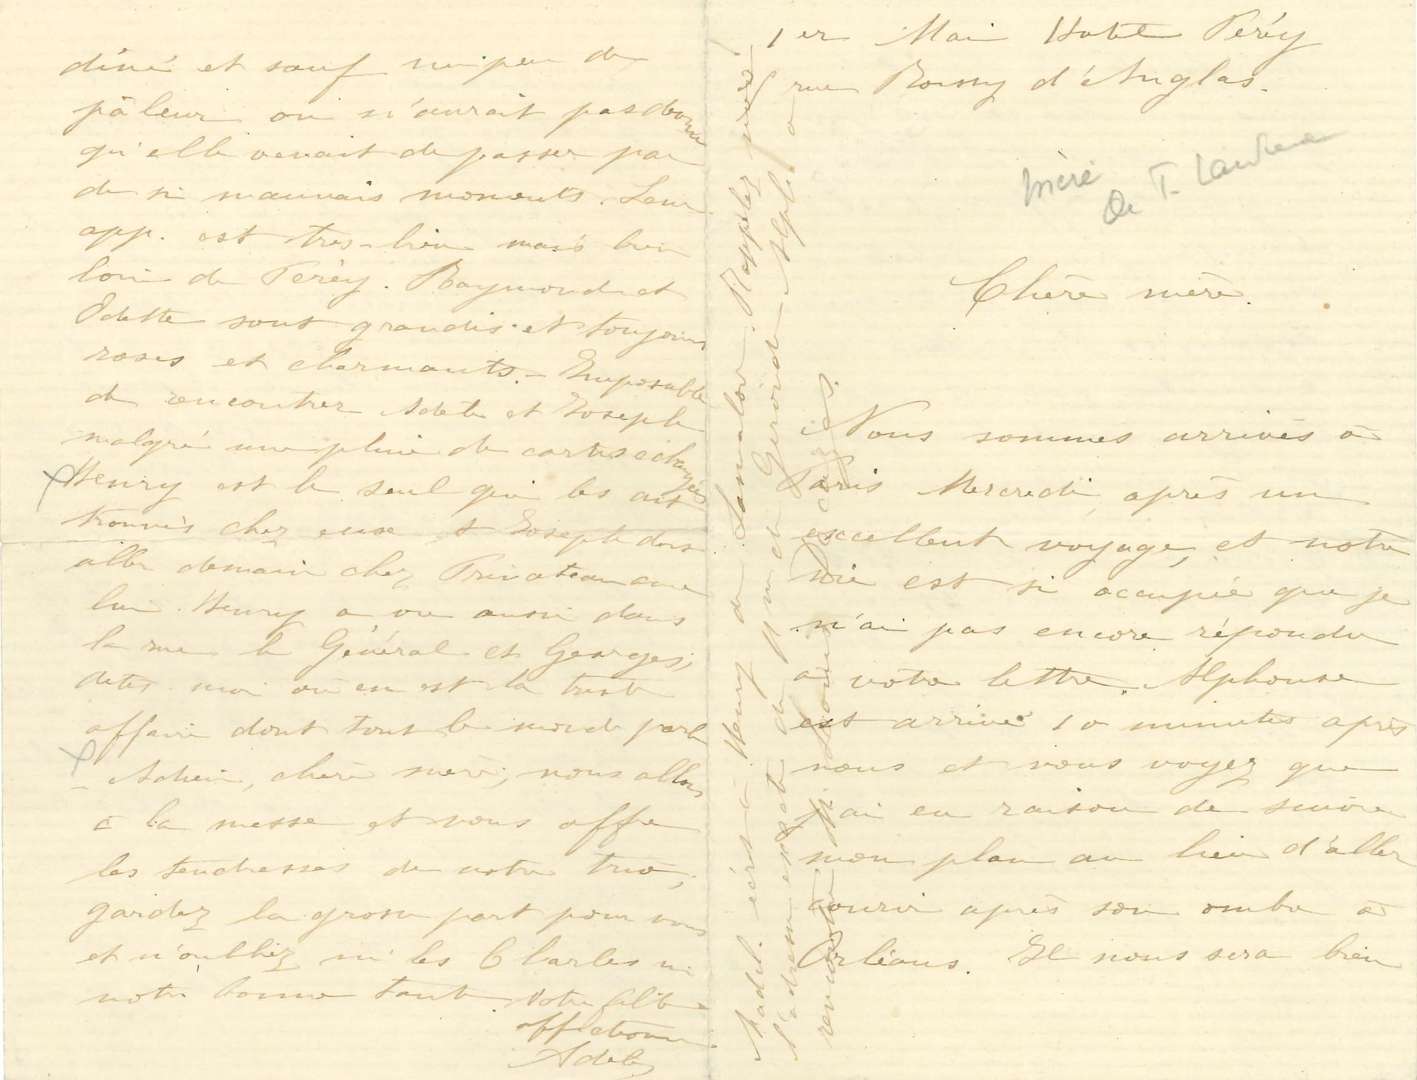 1er Mai Hotel Péréy
rue Boissy d'Anglas.
mère
de T.
Chère mère.
Nous sommes arrivés à
Paris Mercredi, après un
excellent voyage, et notre
vie est si occupée que je
n'ai pas encore répondu
à votre lettre. Alphonse
est arrivé 10 minutes après
nous et vous voyez que
j'ai eu raison de suivre
mon plan au lieu d'aller
courir après son ombre à
Orléans. Il nous sera bien
diné et sauf un peu de
pâleur on n'aurait pas
qu'elle venait de passer par
de si mauvais moments. Leur
app. est très-bien mais bien
loin de Péréy. Raymond et
Odette sont grandis et toujours
roses et charmants. - Impossible
de rencontrer Adèle et Joseph
malgré une pluie de cartes échangées
Henry est le seul qui les ait
trouvés chez eux et Joseph doit
aller demain chez Privateau avec
lui. Henry a vu aussi dans
la rue le Général et Georges;
dites moi où en est la triste
affaire dont tout le monde parle
- Adieu, chère mère, nous allons
à la messe et vous offre
les tendresses de notre trio;
gardez la grosse part pour vous
et n'oubliez ni les Charles ni
notre bonne tante. Votre fille
affectionnée
Adèle
écris à Henry de Lamalou. Rappelez moi
l'adresse exacte de Mme de Gironde - Alph. a
rencontré M.